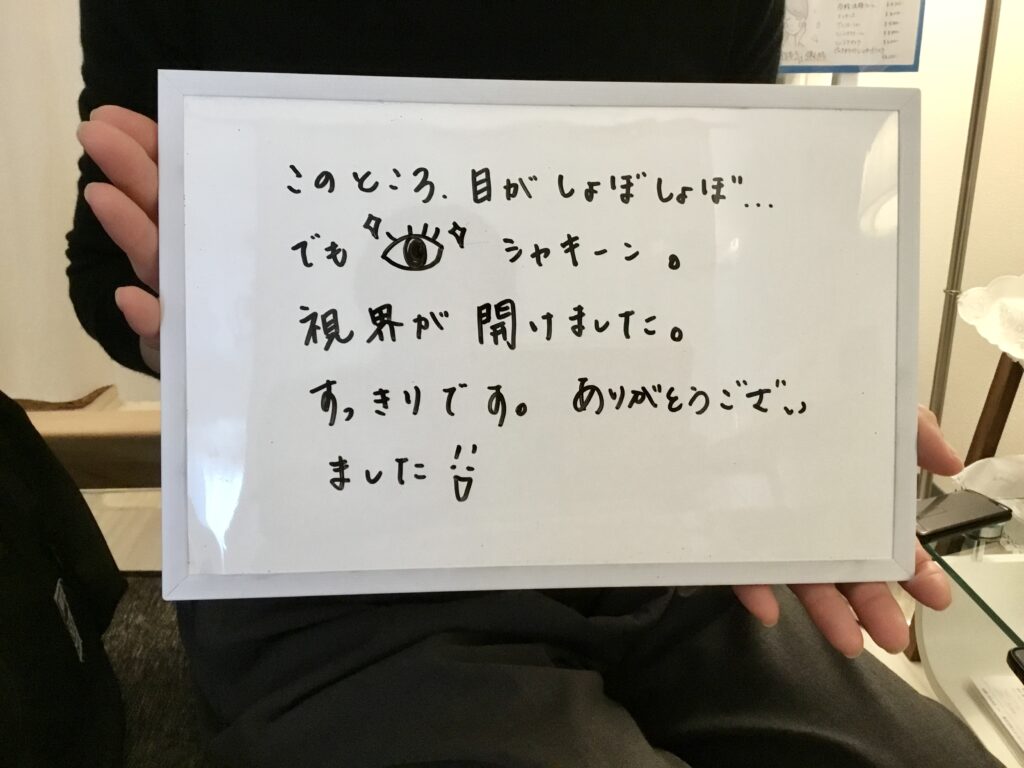 このところ、目がしょぼしょぼ…
でも シャキーン。
視界が開けました。
すっきりです。ありがとうござい
ました